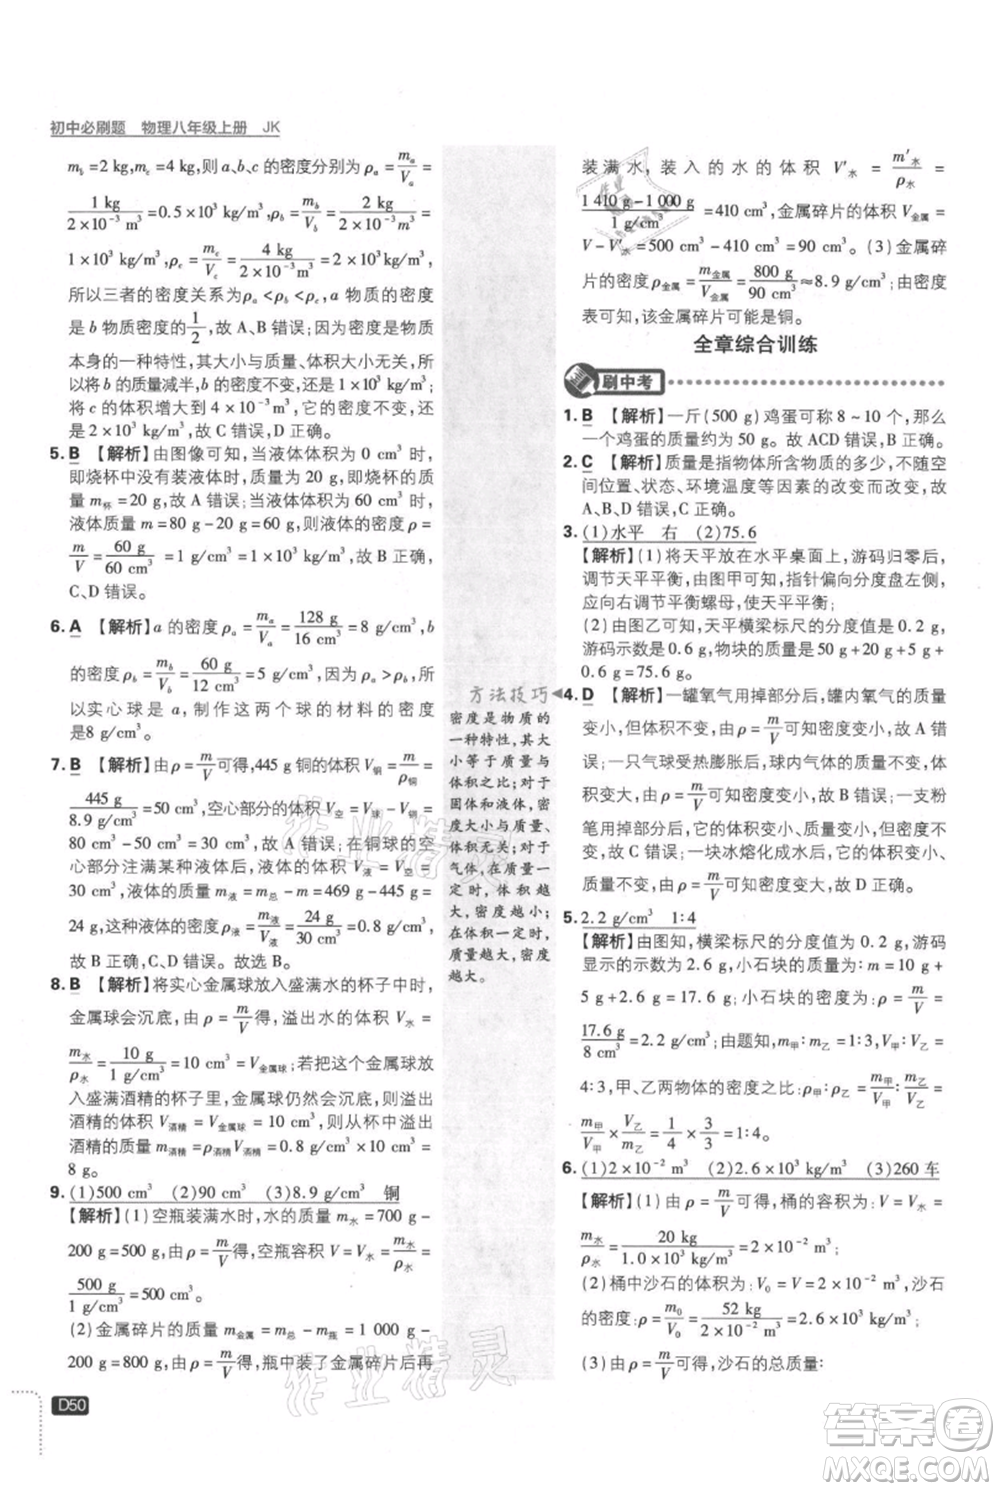 初中必刷题 物理八年级上册 JK
m_b=2 kg,m_c=4 kg,则 a、b、c 的密度分别为 ρ_a=m_a/V_a=
1 kg/(2×10⁻³ m³)=0.5×10³ kg/m³, ρ_b=m_b/V_b=2 kg/(2×10⁻³ m³)=
1×10³ kg/m³, ρ_c=m_c/V_c=4 kg/(2×10⁻³ m³)=2×10³ kg/m³,
所以三者的密度关系为 ρ_a<ρ_b<ρ_c, a 物质的密度
是 b 物质密度的1/2,故 A、B 错误;因为密度是物质
本身的一种特性,其大小与质量、体积大小无关,所
以将 b 的质量减半,b 的密度不变,还是 1×10³ kg/m³;
将 c 的体积增大到 4×10⁻³ m³,它的密度不变,还是
2×10³ kg/m³,故 C 错误,D 正确。
5. B 【解析】由图像可知,当液体体积为 0 cm³ 时,
即烧杯中没有装液体时的质量为 20 g,即烧杯的质
量 m杯=20 g,故 A 错误;当液体体积为 60 cm³ 时,
液体质量 m=80 g-20 g=60 g,则液体的密度 ρ=
m/V=60 g/60 cm³=1 g/cm³=1×10³ kg/m³,故 B 正确,
C、D 错误。
6. A 【解析】a 的密度 ρ_a=m_a/V_a=128 g/16 cm³=8 g/cm³,b
的密度 ρ_b=m_b/V_b=60 g/12 cm³=5 g/cm³;因为 ρ_a>ρ_b,所
以实心球是 a,制作这两个球的材料的密度
是8 g/cm³。
7. B 【解析】由 ρ=m/V可得,445 g 铜的体积 V铜=m/ρ铜=
445 g/8.9 g/cm³=50 cm³,空心部分的体积 V空=V球-V铜=
80 cm³-50 cm³=30 cm³,故 A 错误;在铜球的空
心部分注满某种液体后,液体的体积 V液=V空=
30 cm³,液体的质量 m液=m总-m=469 g-445 g=
24 g,这种液体的密度 ρ液=m液/V液=24 g/30 cm³=0.8 g/cm³,
故 B 正确,C、D 错误。故选 B。
8. B 【解析】将实心金属球放入盛满水的杯子中时,
金属球会沉底,由 ρ=m/V得,溢出水的体积 V水=
m水/ρ水=10 g/1 g/cm³=10 cm³=V金属球;若把这个金属球放
入盛满酒精的杯子里,金属球会沉底,则溢出
酒精的体积 V酒精=V金属球=10 cm³,则从杯中溢出
酒精的质量 m酒精=ρ酒精V酒精=0.8 g/cm³×10 cm³=
8 g。
9. (1)500 cm³ (2)90 cm³ (3)8.9 g/cm³ 铜
【解析】(1)空瓶装满水时,水的质量 m水=700 g-
200 g=500 g,由 ρ=m/V得,空瓶容积 V=V水=m水/ρ水=
500 g/1 g/cm³=500 cm³。
(2)金属碎片的质量 m金属=m总-m瓶=1 000 g-
200 g=800 g,由 ρ=m/V得,瓶中装了金属碎片后再
D50
方法技巧
密度是物质的
一种特性,其大
小等于质量与
体积之比;对于
固体和液体,密
度大小与质量、
体积无关;对于
气体,在质量一
定时,体积越
大,密度越小;
在体积一定时,
质量越大,密度
越大。
装满水,装入的水的体积 V′水=m′水/ρ水=
(1 410 g-1 000 g)/1 g/cm³=410 cm³,金属碎片的体积 V金属=
V-V′水=500 cm³-410 cm³=90 cm³。(3)金属碎
片的密度 ρ金属=m金属/V金属=800 g/90 cm³≈8.9 g/cm³;由密
度表可知,该金属碎片可能是铜。
全章综合训练
刷中考
1. B 【解析】一斤(500 g)鸡蛋可称 8~10 个,那么
一个鸡蛋的质量约为 50 g。故 ACD 错误,B 正确。
2. C 【解析】质量是指物体所含物质的多少,不随空
间位置、状态、环境温度等因素的改变而改变,故
A、B、D 错误,C 正确。
3. (1)水平 右 (2)75.6
【解析】(1)将天平放在水平桌面上,游码归零后,
调节天平平衡,由图甲可知,指针偏向分度盘左侧,
应向右调节平衡螺母,使天平平衡;
(2)由图乙可知,天平横梁标尺的分度值是 0.2 g,
游码示数是 0.6 g,物块的质量 m=50 g+20 g+5 g+
0.6 g=75.6 g。
4. D 【解析】一罐氧气用掉部分后,罐内氧气的质量
变小,但体积不变,由 ρ=m/V可知密度变小,故 A 错
误;一只气球受热膨胀后,球内气体的质量不变,体
积变大,由 ρ=m/V可知密度变小,故 B 错误;一支粉
笔用掉部分后,质量和体积都变小,但密度保持不
变,故 C 错误;一块冰熔化成水后,质量不变,体积
变小,由 ρ=m/V可知密度变大,故 D 正确。
5. 2.2 g/cm³ 1:4
【解析】由图知,横梁标尺的分度值为 0.2 g,游码
显示的示数为 2.6 g,小石块的质量为 m=10 g+5 g+
2.6 g=17.6 g,小石块的密度为 ρ=m/V=
17.6 g/8.0 cm³=2.2 g/cm³;由题知,m甲:m乙=1:3,V甲:V乙=
4:3,甲、乙两物体的密度之比 ρ甲:ρ乙=m甲/V甲:m乙/V乙=
m甲/V甲×V乙/m乙=1/4×3/3=1:4。
6. (1)2×10⁻² m³ (2)2.6×10³ kg/m³ (3)260 车
【解析】(1)由 ρ=m/V可得,桶的容积为:V=V水=
m水/ρ水=20 kg/1.0×10³ kg/m³=2×10⁻² m³;
(2)桶中沙石的体积为:V₀=V=2×10⁻² m³,沙石
的密度:ρ=m₀/V₀=52 kg/2×10⁻² m³=2.6×10³ kg/m³;
(3)由 ρ=m/V可得,沙石的总质量:
作业精灵
作业精灵
答案卷
MXQE.COM